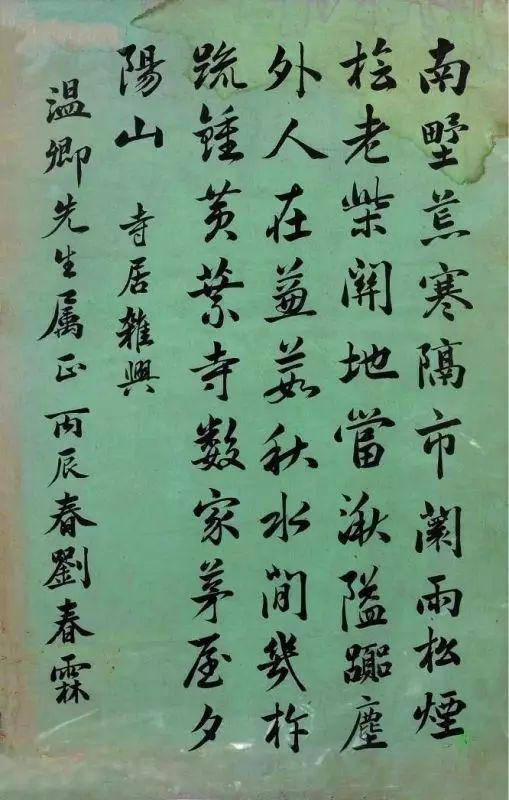 南墅荒寒隔市闤雨松煙
桧老柴關地當湫隘囂塵
外人在蒹葭秋水間幾杵
疏鍾黃葉寺數家茅屋夕
陽山 寺居雜興
溫卿先生属正 丙辰春劉春霖